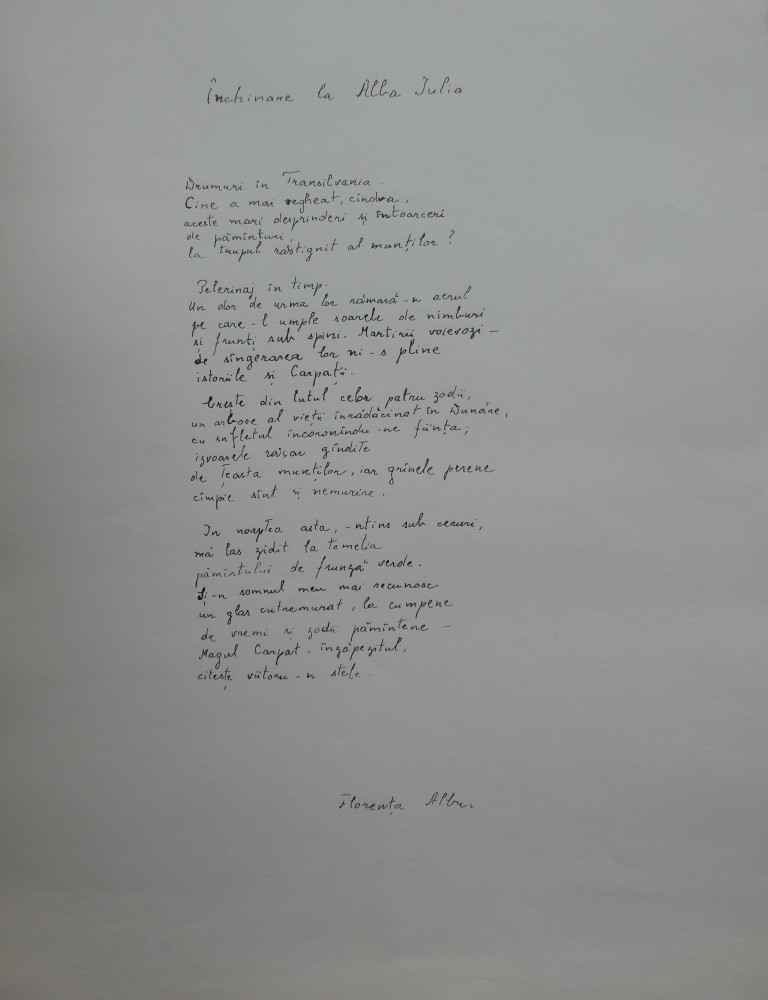 Închinare la Alba Iulia
Drumuri în Transilvania.
Cine a mai vegheat, cîndva,
aceste mari desprinderi și întoarceri
de pămînturi,
la trupul răstignit al munților?
Pelerinaj în timp.
Un dor de urma lor rămasă-n aerul
pe care-l umple soarele de nimburi
și frunți sub spini. Martirii voievozi –
de sîngerarea lor ni-s pline
istoriile și Carpații.
Crește din lutul celor patru zodii,
un arbore al vieții înrădăcinat în Dunăre,
cu sufletul încoronîndu-ne ființa;
izvoarele răsar gîndite
de țeasta munților, iar grînele perene
cîmpie sînt și nemurire.
In noaptea asta, -ntins sub ceruri,
mă las zidit la temelia
pămîntului de frunză verde.
Și-n somnul meu mai recunosc
un glas cutremurat, la cumpene
de vremi și zodii pămîntene –
Magul Carpat, înzăpezitul,
citește viitoru-n stele.
Florența Albu